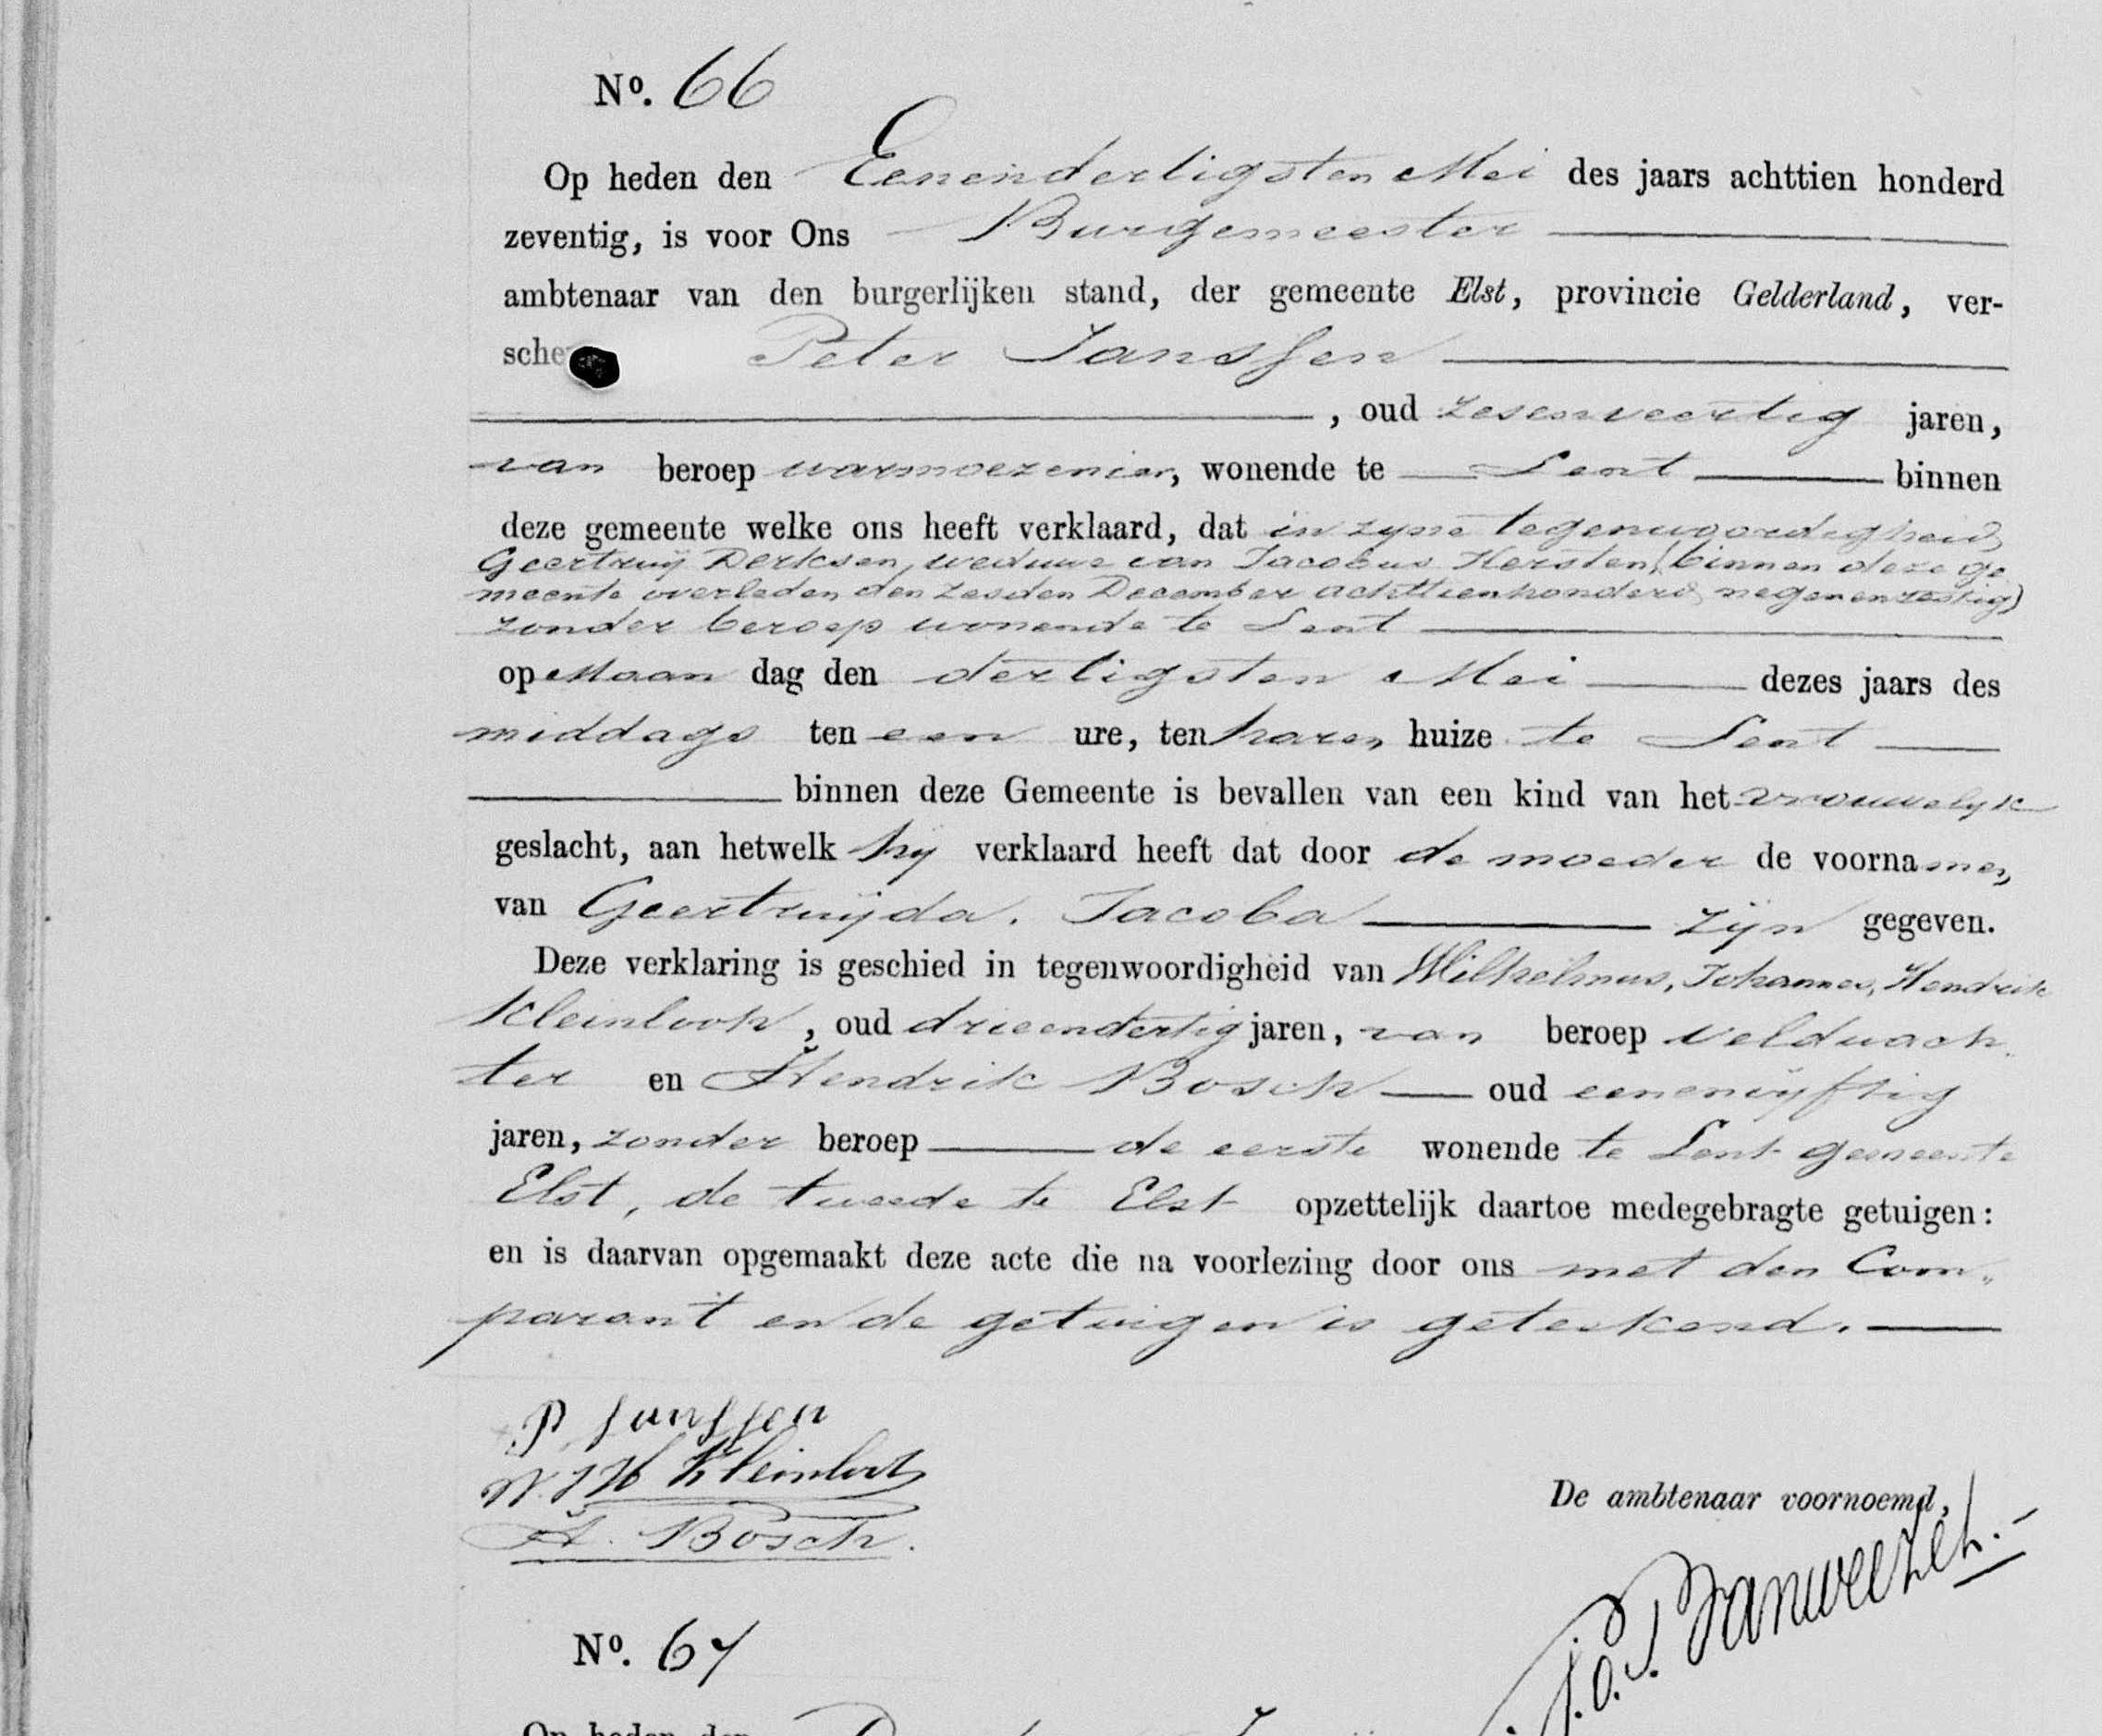 No. 66
Op heden den Eenendertigsten Mei des jaars achttien honderd
zeventig, is voor Ons Burgemeester
ambtenaar van den burgerlijken stand, der gemeente Elst, provincie Gelderland, ver-
sche Peter Janssen
, oud zesenveertig jaren,
van beroep warmoezenier, wonende te Lent binnen
deze gemeente welke ons heeft verklaard, dat in zyne tegenwoordigheid
Geertruij Derksen, weduwe van Jacobus Kersten, (binnen deze ge
meente overleden den zesden December achttienhonderd negenenzestig)
zonder beroep wonende te Lent
op Maan dag den dertigsten Mei dezes jaars des
middags ten een ure, ten haren huize te Lent
binnen deze Gemeente is bevallen van een kind van het vrouwelyk
geslacht, aan hetwelk hij verklaard heeft dat door de moeder de voornamen
van Geertruijda. Jacoba zijn gegeven.
Deze verklaring is geschied in tegenwoordigheid van Wilhelmus, Johannes, Hendrik
Kleinlooh, oud drieendertig jaren, van beroep veldwach
ter en Hendrik Bosch oud eenenvijftig
jaren, zonder beroep de eerste wonende te Lent gemeente
Elst, de tweede te Elst opzettelijk daartoe medegebragte getuigen:
en is daarvan opgemaakt deze acte die na voorlezing door ons met den Com„
parant en de getuigen is geteekend.
P Janssen
W. J H Kleinlooh
H. Bosch.
De ambtenaar voornoemd,
No. 67
Op heden den